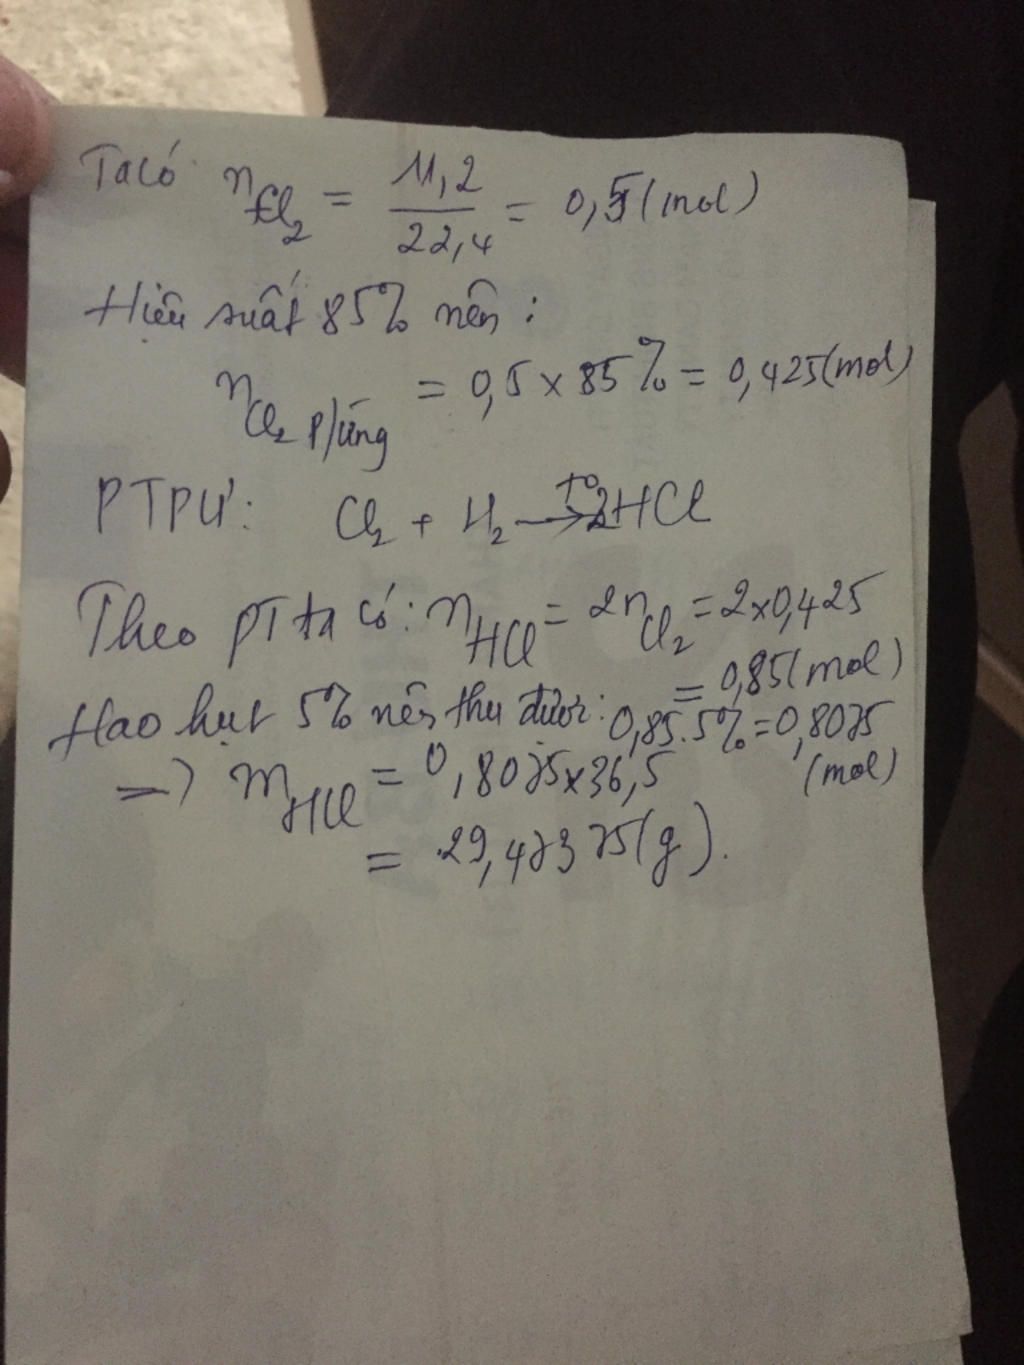 Ta có n Cl₂ = 11,2 / 22,4 = 0,5 (mol)
Hiệu suất 85% nên :
n Cl₂ p/ứng = 0,5 × 85% = 0,425 (mol)
PTPƯ: Cl₂ + H₂ →(t°) 2HCl
Theo PT ta có: n HCl = 2n Cl₂ = 2×0,425
= 0,85 (mol)
Hao hụt 5% nên thu được: 0,85.5% = 0,8075
(mol)
=> m HCl = 0,8075×36,5
= 29,47375 (g).